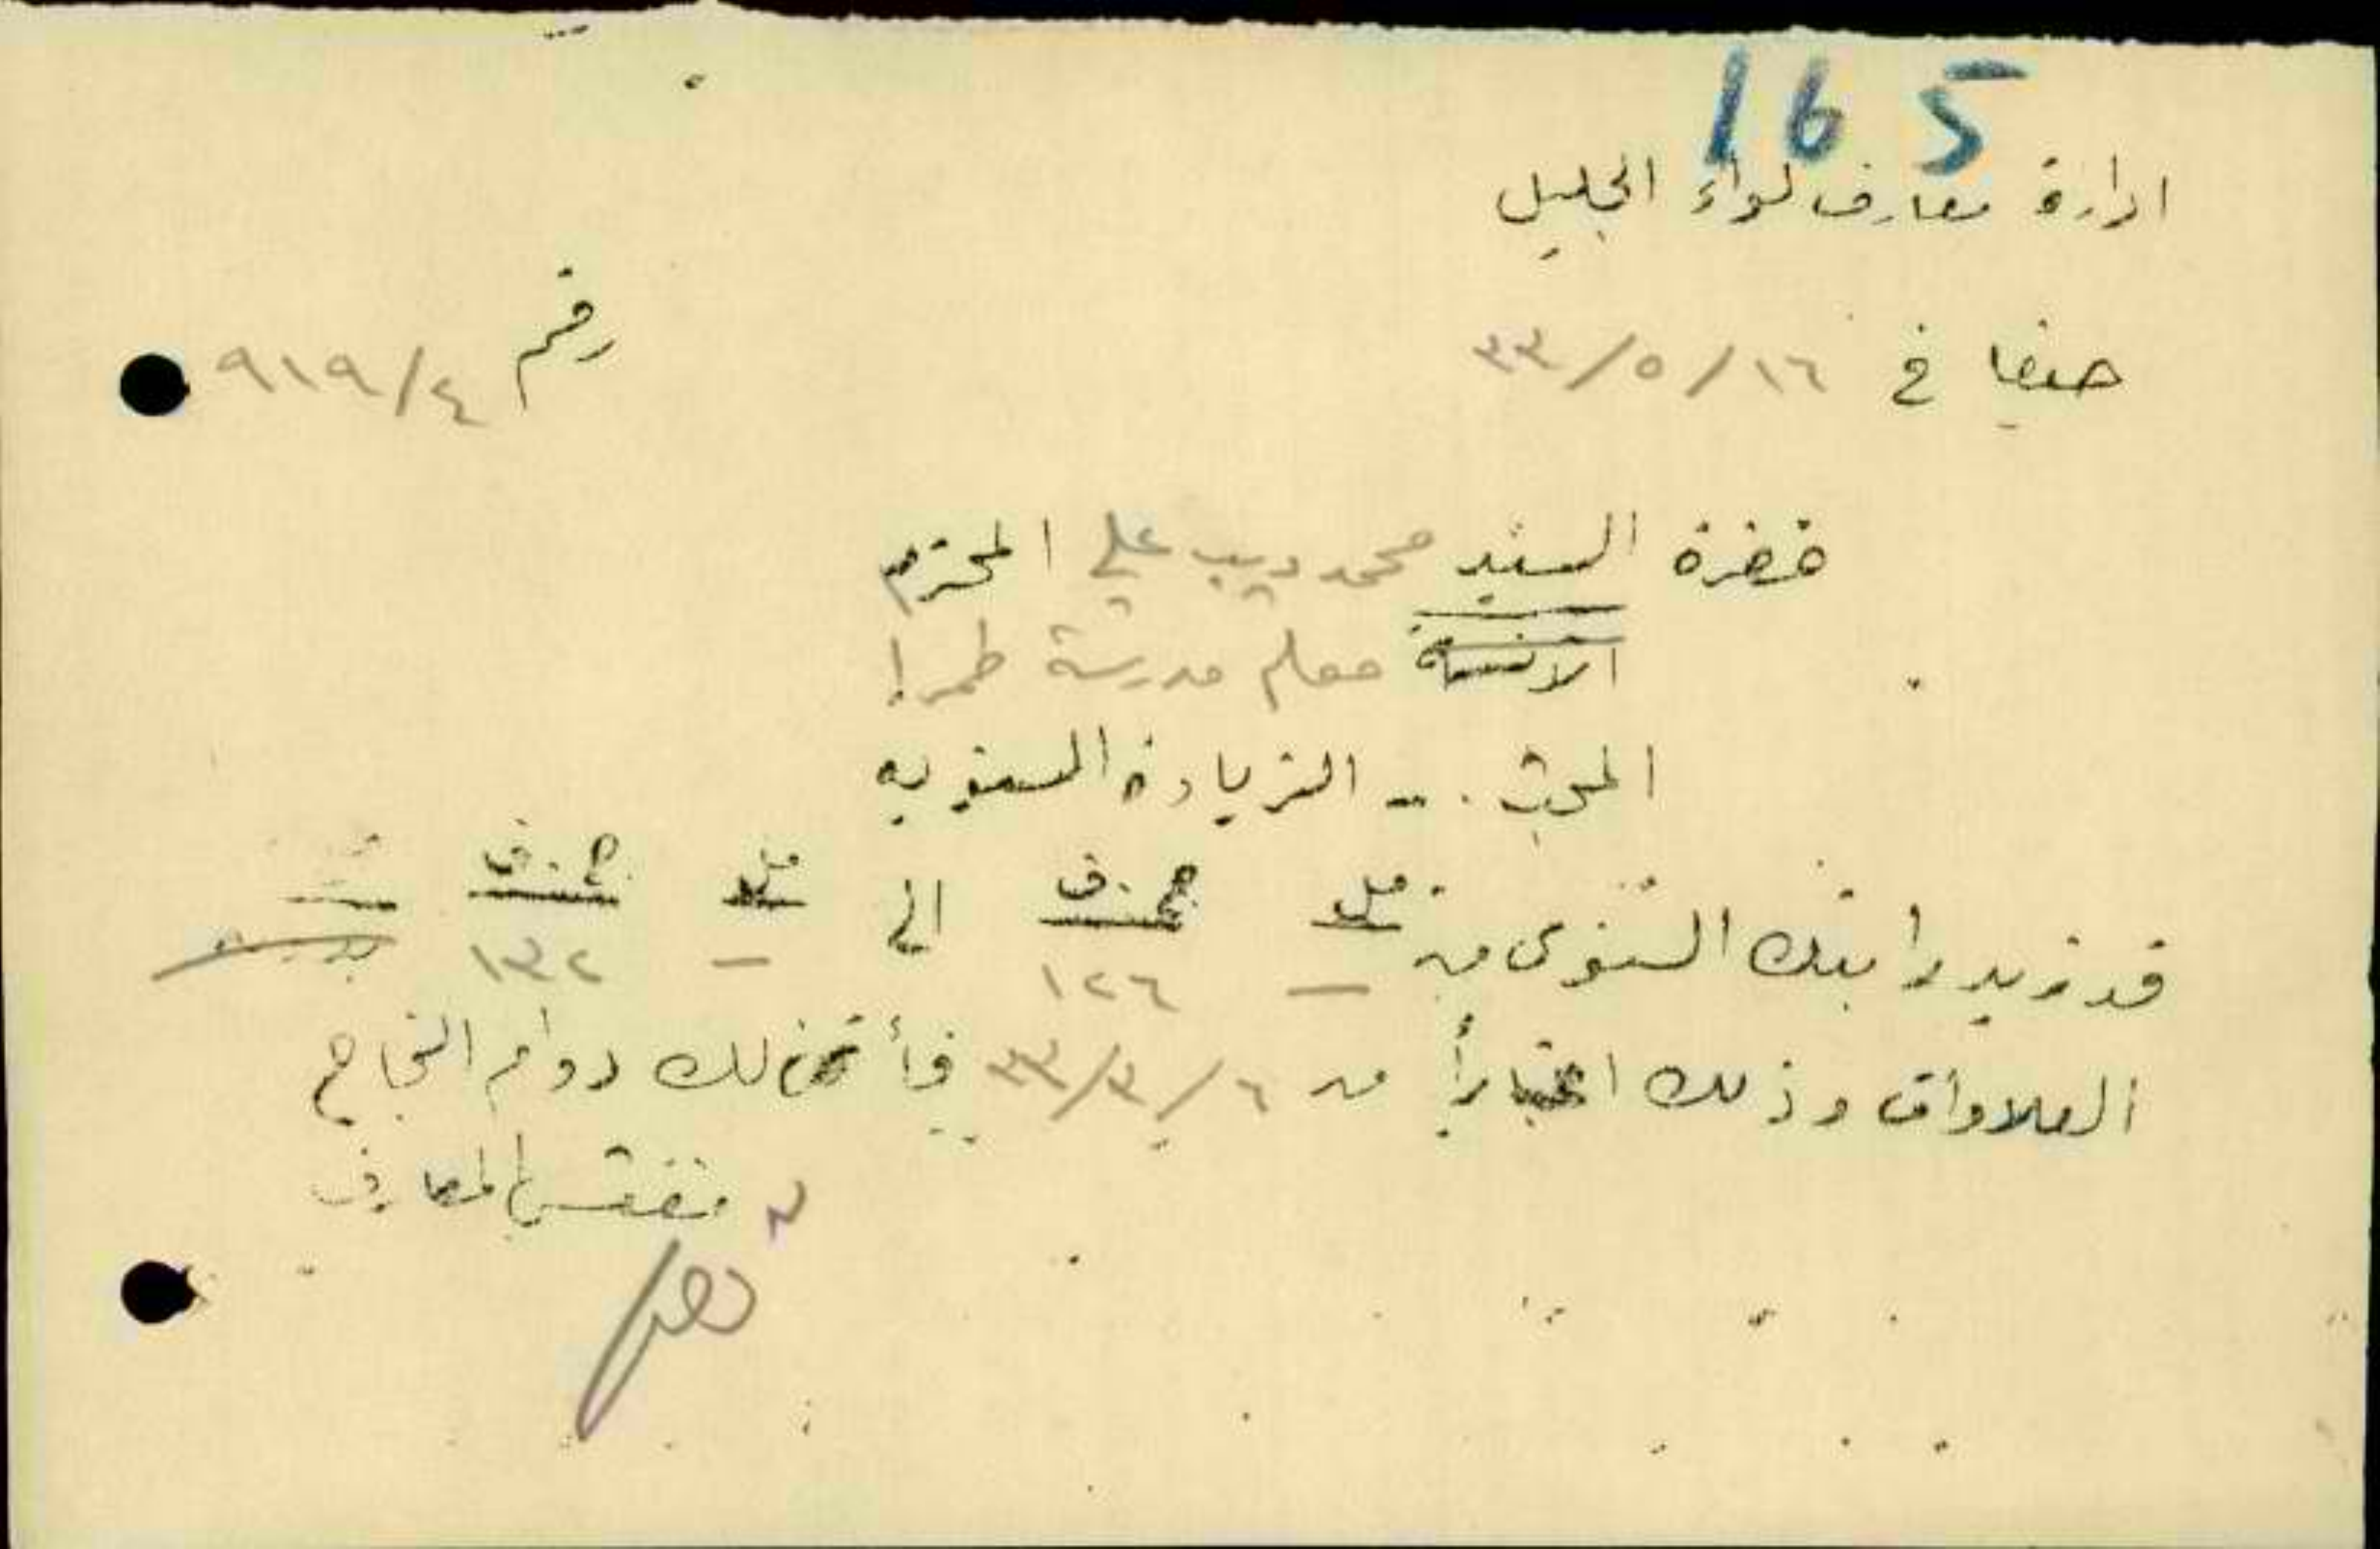 165
ادارة معارف لواء الجليل
حيفا في ١٦/٥/٣٣
رقم ٩١٩/٤
حضرة السيد محمد ديب علي المحترم
الانسة معلم مدرسة طمرا
المبحث :- الزيادة السنويه
قد زيد راتبك السنوى من ملـ جـ.ف الى ملـ جـ.ف
— ١٢٦ — ١٣٢
العلاوات وذلك اعتباراً من ٦/٣/٣٣ فأتمنى لك دوام النجاح
مفتش المعارف